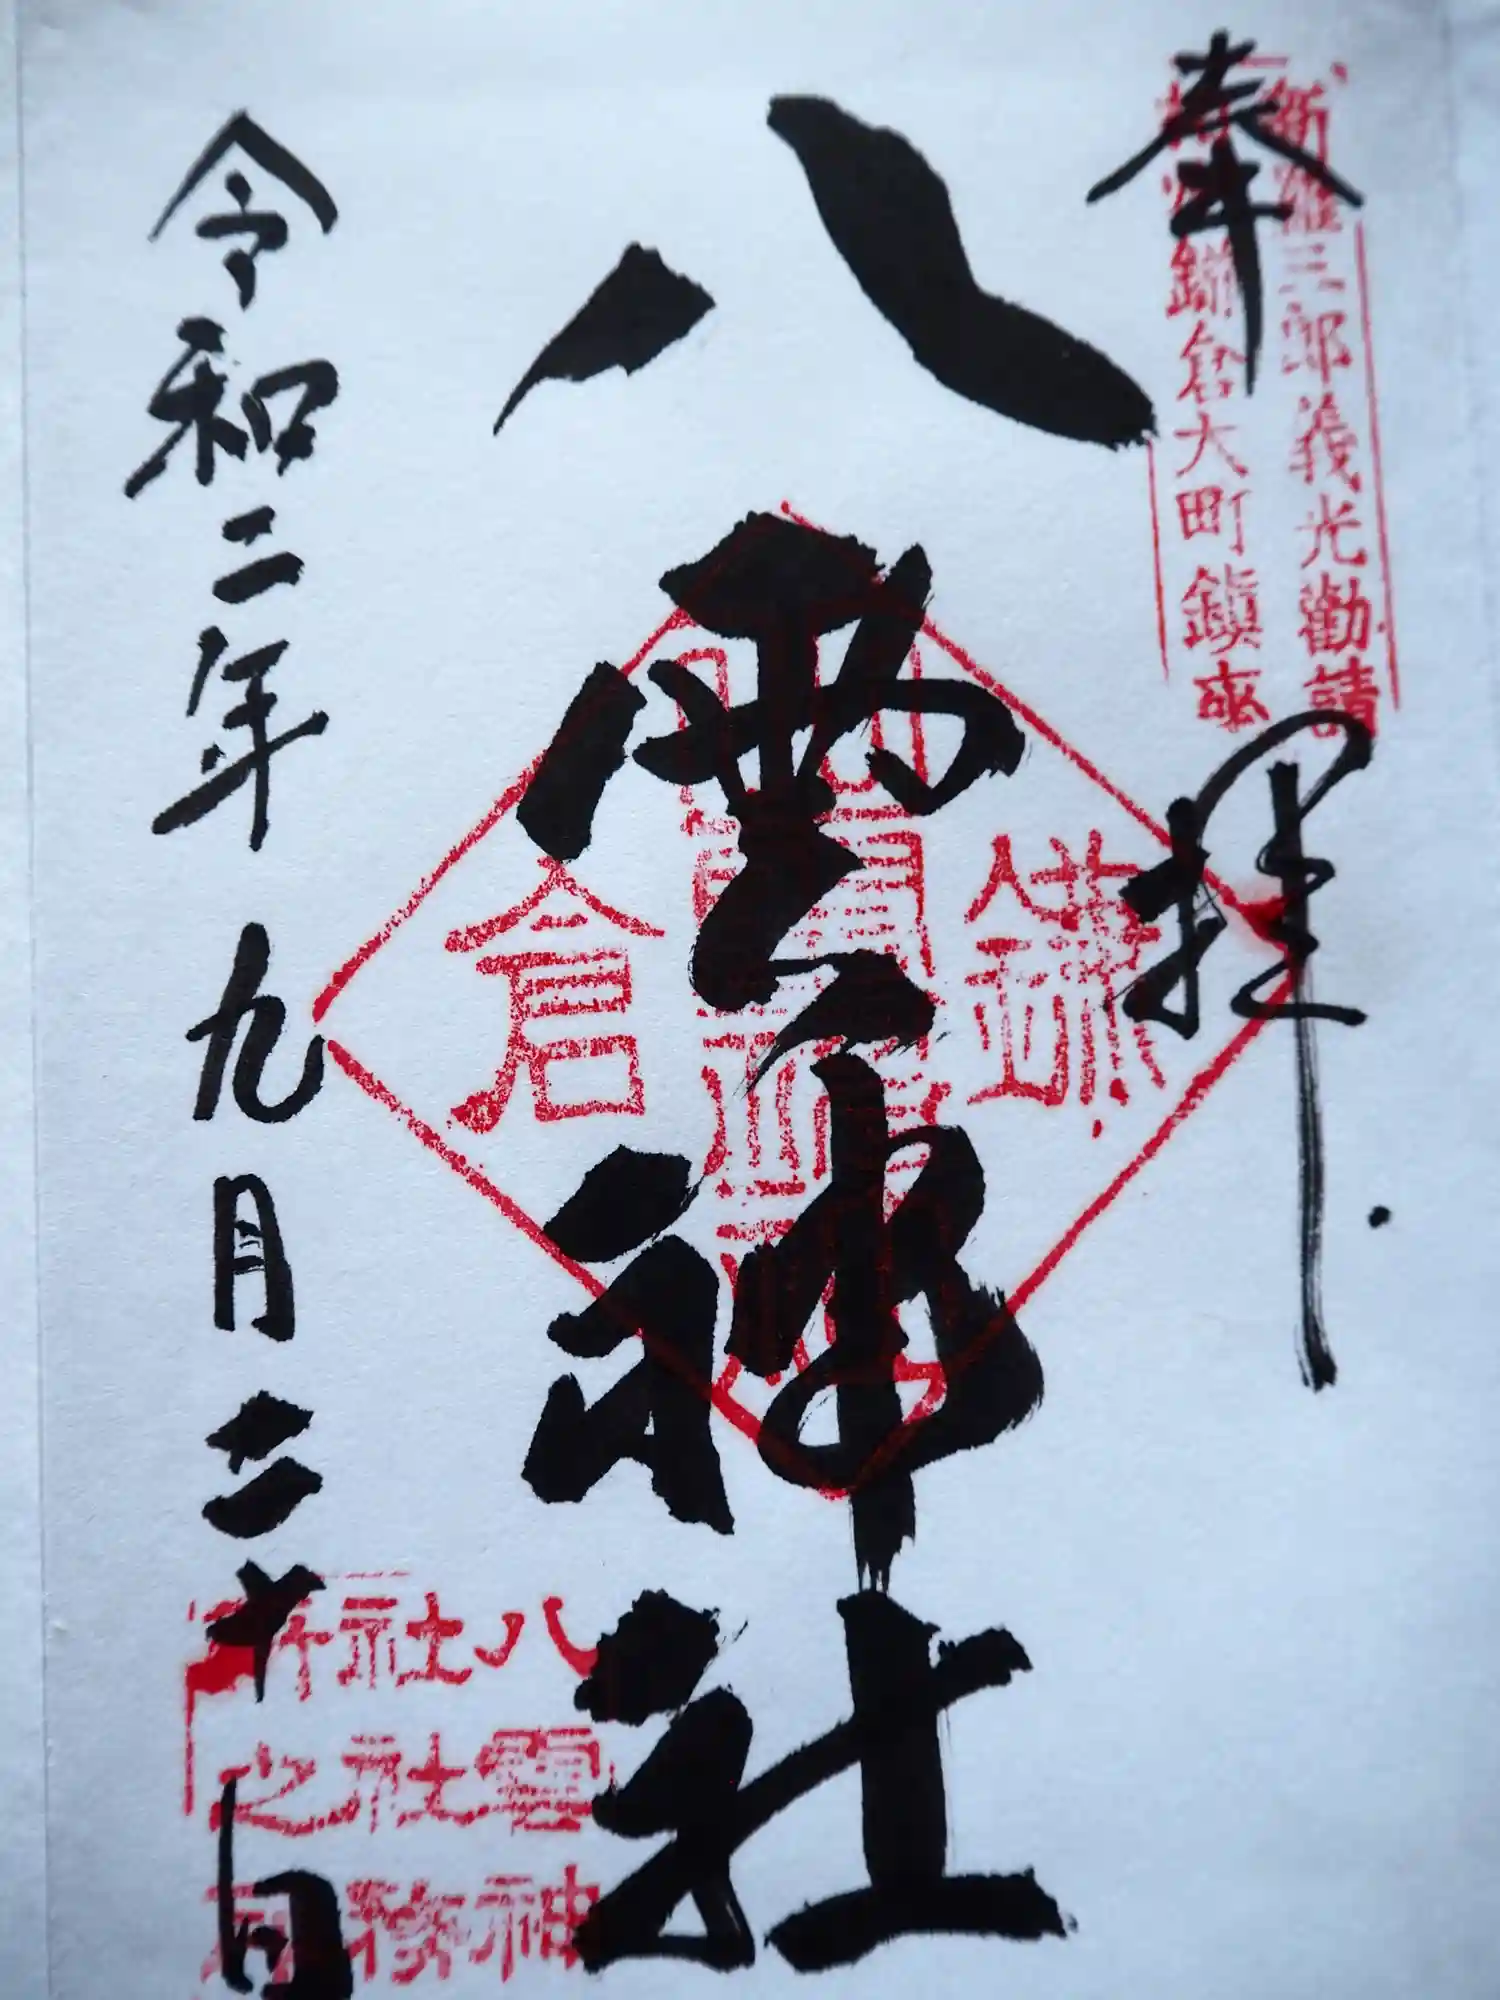 奉拝
新羅三郎義光勧請
相州鎌倉大町鎮座
八雲神社
鎌倉
令和二年九月二十日
八雲神
社社務
所之印